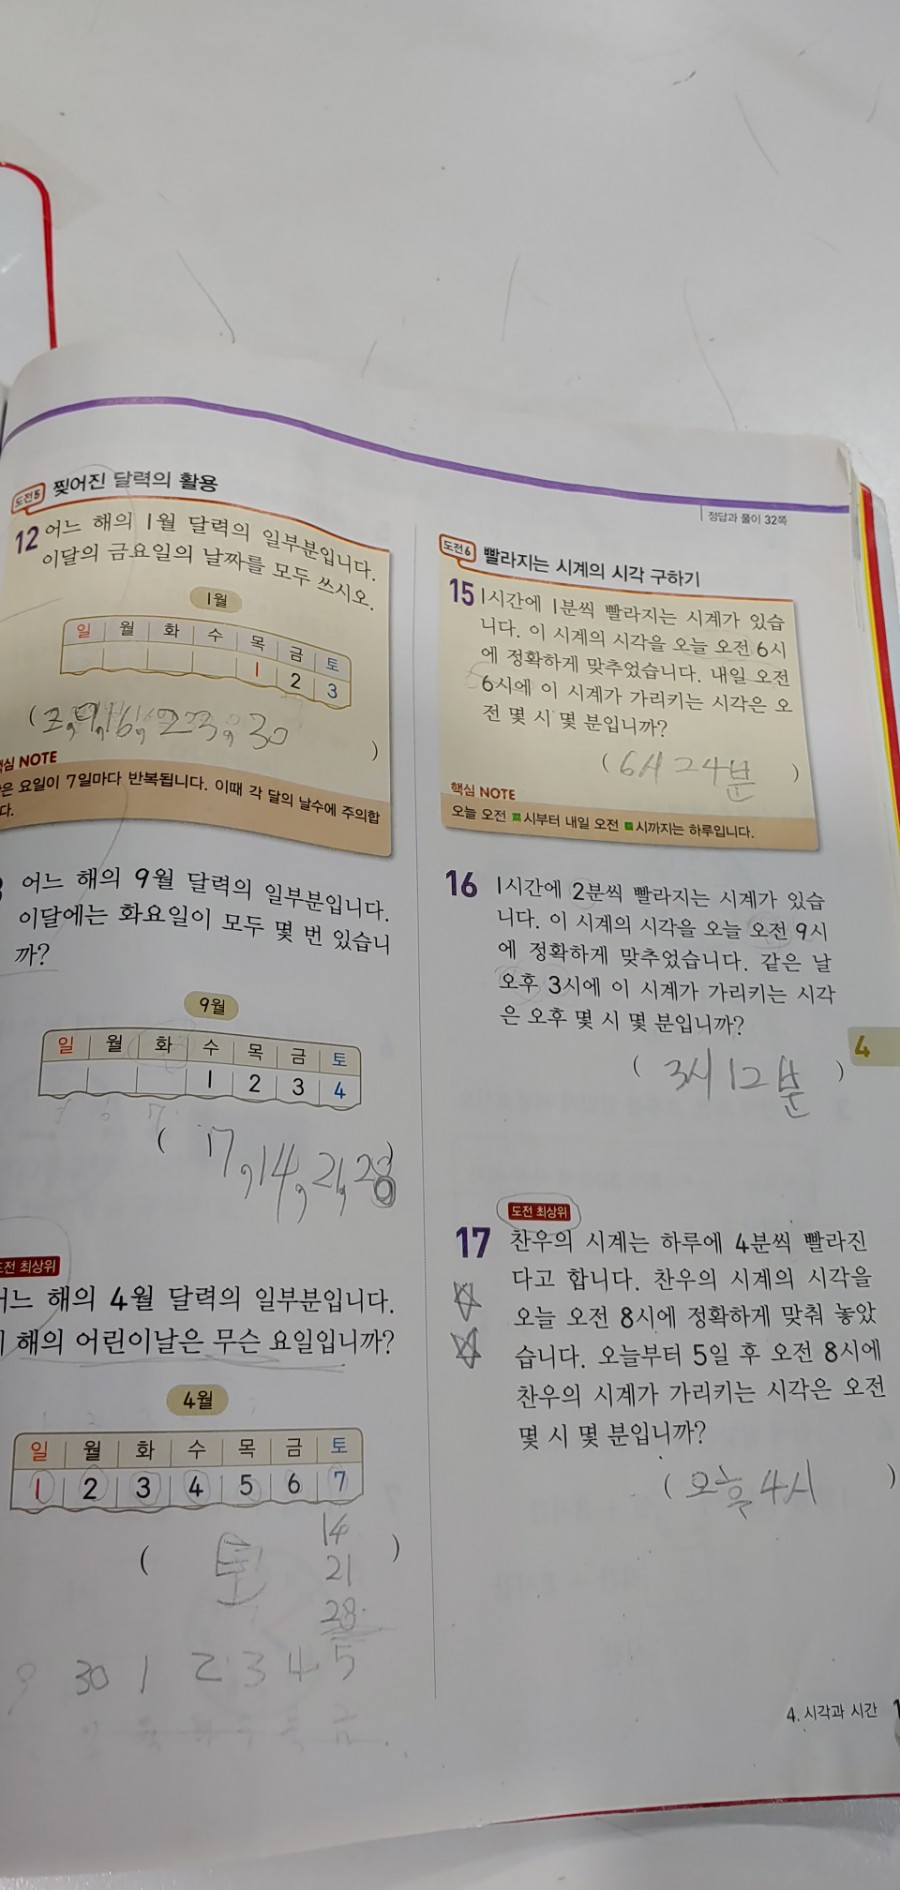 도전5 찢어진 달력의 활용
12 어느 해의 1월 달력의 일부분입니다.
이달의 금요일의 날짜를 모두 쓰시오.
1월
일 월 화 수 목 금 토
1 2 3
( 2, 9, 16, 23, 30 )
핵심 NOTE
은 요일이 7일마다 반복됩니다. 이때 각 달의 날수에 주의합
다.
어느 해의 9월 달력의 일부분입니다.
이달에는 화요일이 모두 몇 번 있습니
까?
9월
일 월 화 수 목 금 토
1 2 3 4
7
( 7, 14, 21, 28 )
도전 최상위
어느 해의 4월 달력의 일부분입니다.
해의 어린이날은 무슨 요일입니까?
4월
일 월 화 수 목 금 토
1 2 3 4 5 6 7
( 토 )
14
21
28
30 1 2 3 4 5
정답과 풀이 32쪽
도전6 빨라지는 시계의 시각 구하기
15 1시간에 1분씩 빨라지는 시계가 있습
니다. 이 시계의 시각을 오늘 오전 6시
에 정확하게 맞추었습니다. 내일 오전
6시에 이 시계가 가리키는 시각은 오
전 몇 시 몇 분입니까?
( 6시 24분 )
핵심 NOTE
오늘 오전 ■시부터 내일 오전 ■시까지는 하루입니다.
16 1시간에 2분씩 빨라지는 시계가 있습
니다. 이 시계의 시각을 오늘 오전 9시
에 정확하게 맞추었습니다. 같은 날
오후 3시에 이 시계가 가리키는 시각
은 오후 몇 시 몇 분입니까?
( 3시 12분 )
4
도전 최상위
17 찬우의 시계는 하루에 4분씩 빨라진
다고 합니다. 찬우의 시계의 시각을
오늘 오전 8시에 정확하게 맞춰 놓았
습니다. 오늘부터 5일 후 오전 8시에
찬우의 시계가 가리키는 시각은 오전
몇 시 몇 분입니까?
( 오후 4시 )
4. 시각과 시간